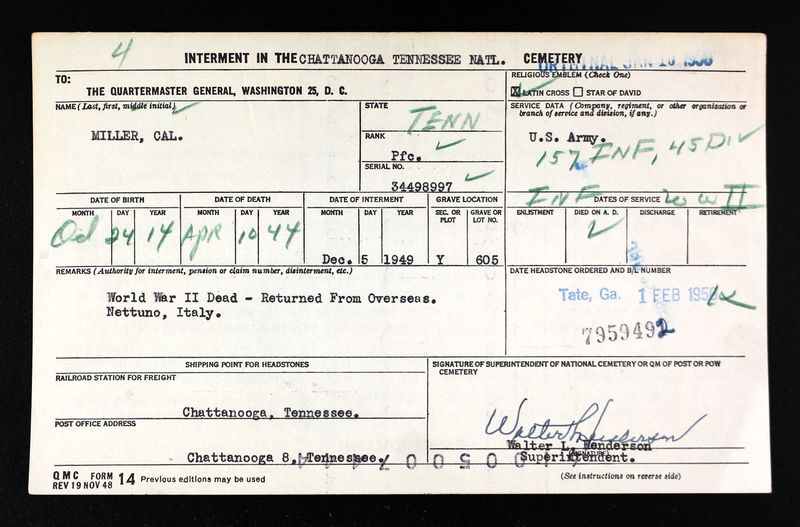 4
INTERMENT IN THE CHATTANOOGA TENNESSEE NATL. CEMETERY
ORIGINAL JAN 10 1950
TO:
THE QUARTERMASTER GENERAL, WASHINGTON 25, D. C.
RELIGIOUS EMBLEM (Check One)
X LATIN CROSS STAR OF DAVID
NAME (Last, first, middle initial)
MILLER, CAL.
STATE
TENN
RANK
Pfc.
SERIAL NO.
34498997
SERVICE DATA (Company, regiment, or other organization or branch of service and division, if any.)
U.S. Army.
157 INF, 45 DIV
INF
WW II
DATE OF BIRTH
MONTH DAY YEAR
Oct 24 14
DATE OF DEATH
MONTH DAY YEAR
Apr 10 44
DATE OF INTERMENT
MONTH DAY YEAR
Dec. 5 1949
GRAVE LOCATION
SEC. OR PLOT
GRAVE OR LOT NO.
Y 605
DATES OF SERVICE
ENLISTMENT DIED ON A. D. DISCHARGE RETIREMENT
REMARKS (Authority for interment, pension or claim number, disinterment, etc.)
World War II Dead - Returned From Overseas.
Nettuno, Italy.
DATE HEADSTONE ORDERED AND B/L NUMBER
Tate, Ga. 1 FEB 1950
7959492
SHIPPING POINT FOR HEADSTONES
RAILROAD STATION FOR FREIGHT
Chattanooga, Tennessee.
POST OFFICE ADDRESS
Chattanooga 8, Tennessee.
SIGNATURE OF SUPERINTENDENT OF NATIONAL CEMETERY OR QM OF POST OR POW CEMETERY
Walter L. Henderson
Walter L. Henderson
(SIGNATURE)
Superintendent.
QMC FORM
REV 19 NOV 48 14 Previous editions may be used
(See instructions on reverse side)